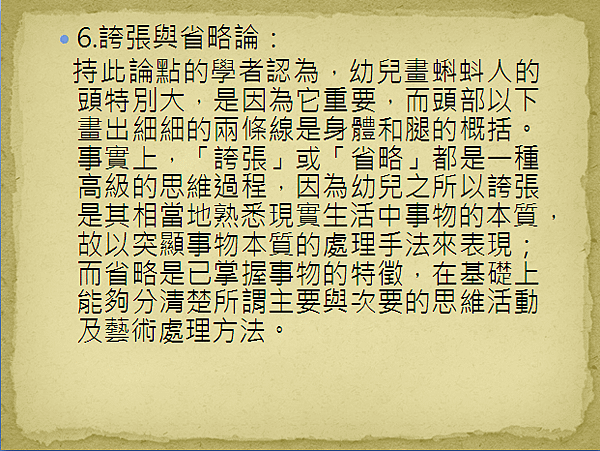 6.誇張與省略論：
持此論點的學者認為，幼兒畫蝌蚪人的
頭特別大，是因為它重要，而頭部以下
畫出細細的兩條線是身體和腿的概括。
事實上，「誇張」或「省略」都是一種
高級的思維過程，因為幼兒之所以誇張
是其相當地熟悉現實生活中事物的本質，
故以突顯事物本質的處理手法來表現；
而省略是已掌握事物的特徵，在基礎上
能夠分清楚所謂主要與次要的思維活動
及藝術處理方法。